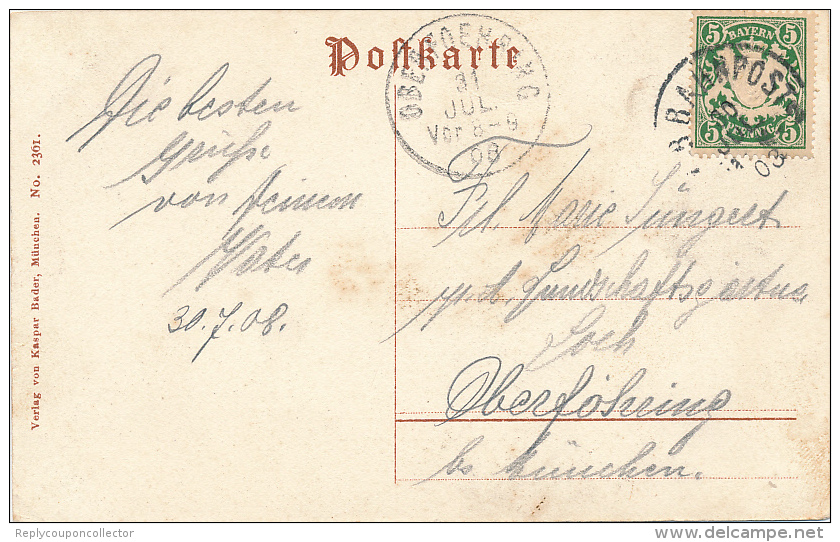 Postkarte
Die besten
Grüße
von Deinem
Vater
30.7.08.
Verlag von Kaspar Bader, München. No. 2361.
OBERFOEHRING
31
JUL.
Vor 8-9
08
5 BAYERN 5
5 PFENNIG 5
BAHNPOST
08
Frl. Marie
Landschaftsgärtner
Oberföhring
bei München.
Replycouponcollector
delcampe.net